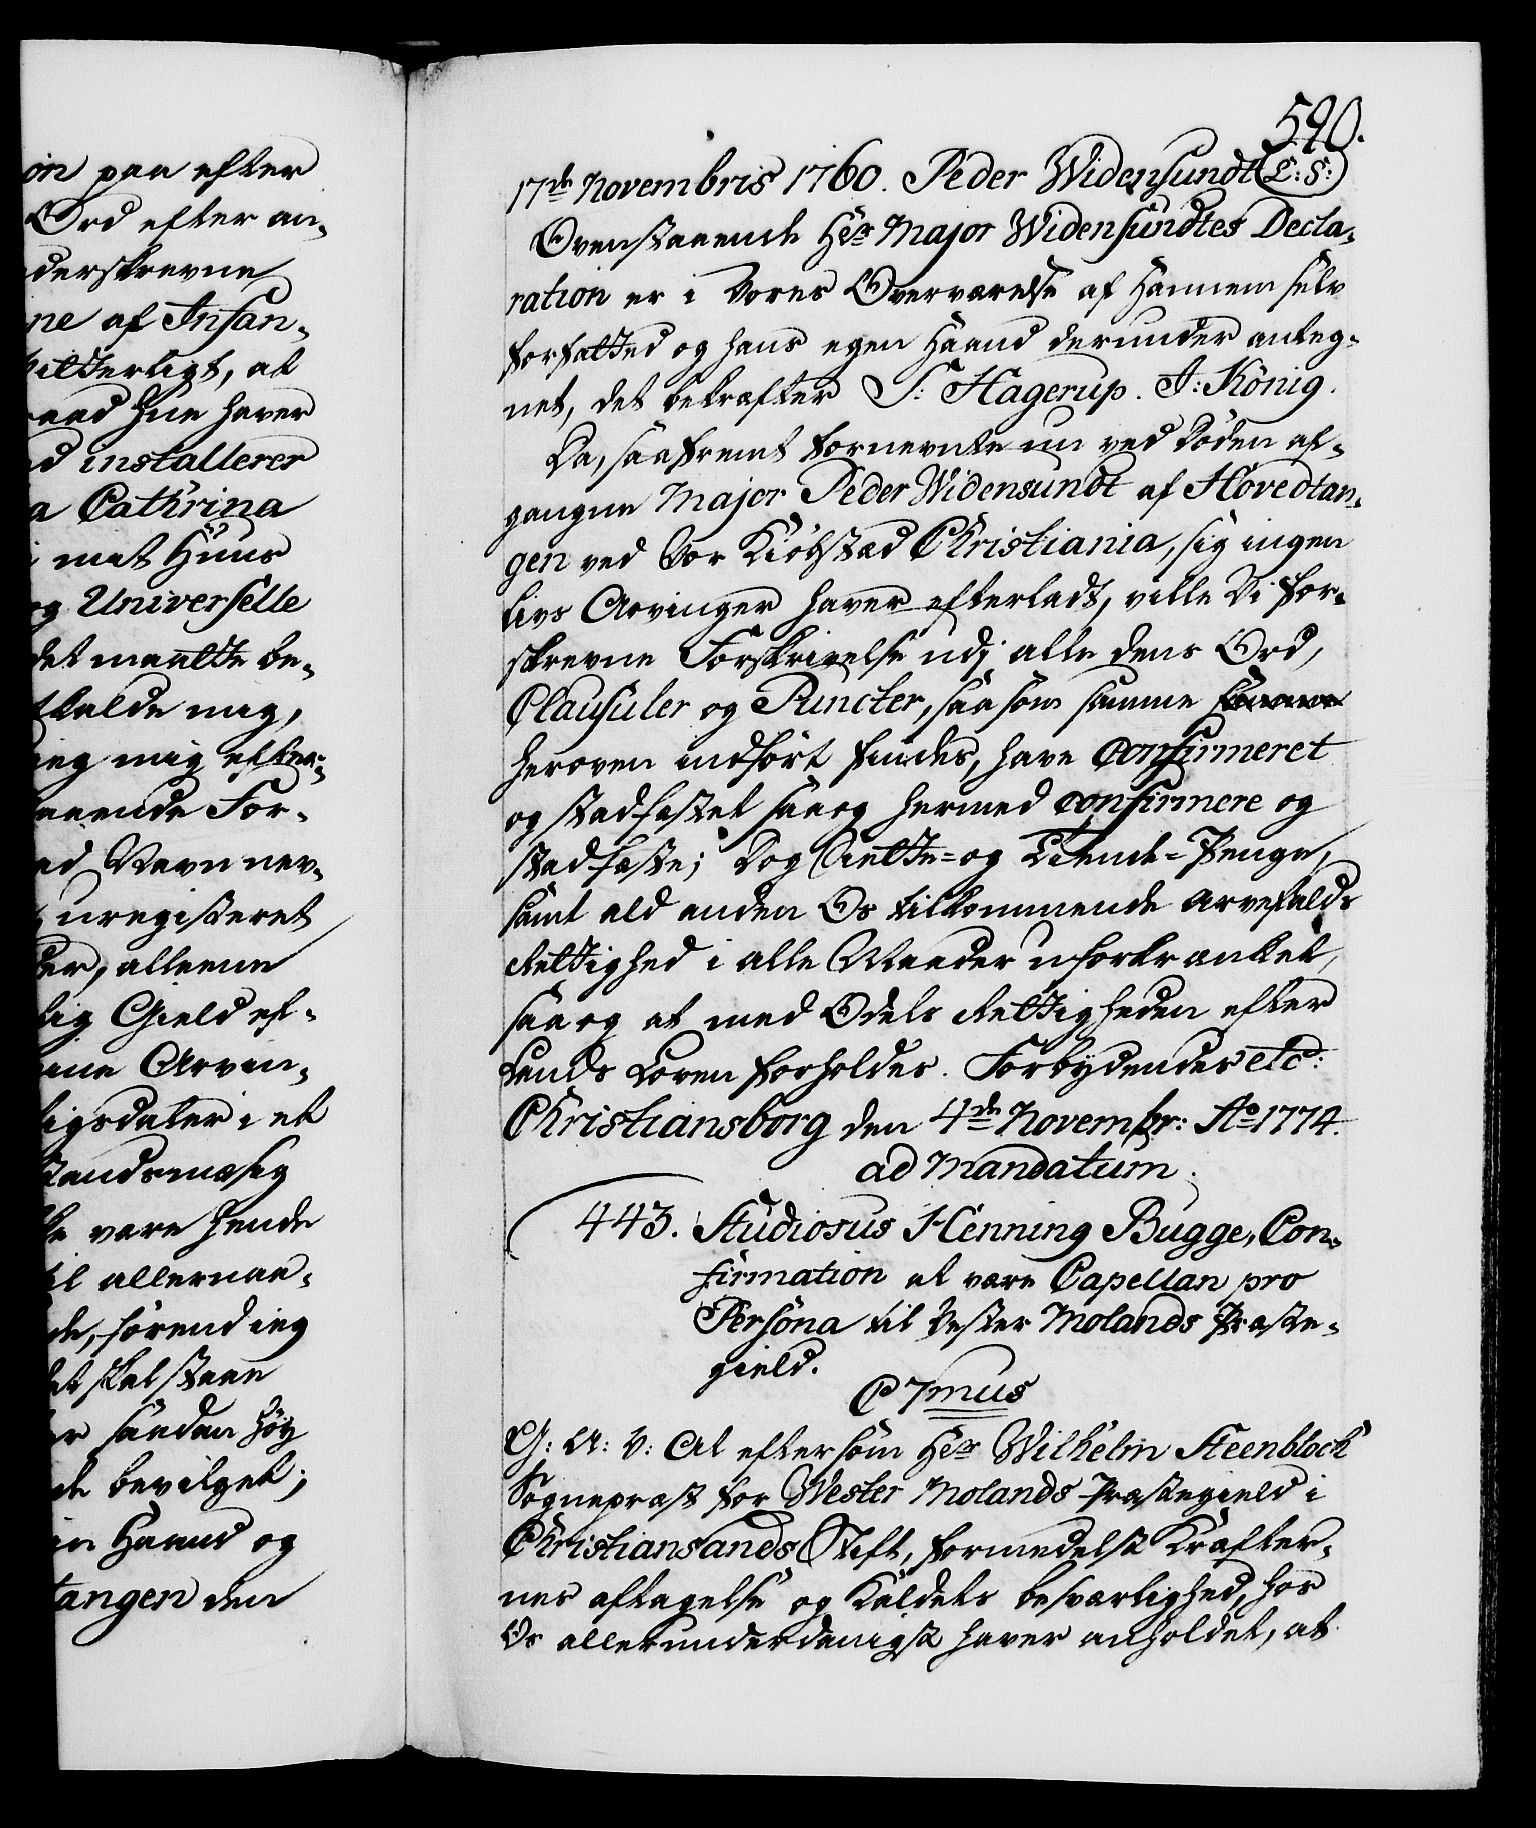 on paa efter
Ord efter an-
derskrevne
ne af Insan-
itterligt, at
raad hun haver
d installerer
a Cathrina
i mit Huus
og Universelle
det maatte be-
tkalde mig,
ieg mig efter-
aaende For-
ed Navn nev-
uregisteret
er, alleene
lig Gield ef-
ine Arvin-
igsdaler i et
standsmæsig
ke være hende
til allernaa-
de, førend ieg
at skal staae
er saadan høy
de bevilget;
in Haand og
tangen den
590.
17de Novembris 1760. Peder Widensundt (L: S:)
Ovenstaaende Hr Major Widensundtes Decla-
ration er i Vores Overværelse af Hannem selv
forfatted og hans egen Haand derunder anteg-
net, det bekræfter S: Hagerup. J: König.
Da, saafremt fornevnte nu ved Døden af-
gangne Major Peder Widensundt af Hovedtan-
gen ved Vor Kiøbstad Christiania, sig ingen
livs Arvinger haver efterladt, ville Vi for-
skrevne Forskrivelse udj alle dens Ord,
Clausuler og Puncter, saasom samme
heroven indført findes, have Confirmeret
og stadfæstet saa og hermed confirmere og
stadfæste; Dog Siette- og Tiende-Penge,
samt ald anden Os tilkommende Arvefalds
Rettighed i alle Maader uforkrænket,
saa og at med Odels Rettigheden efter
Lands Loven forholdes. Forbydendes etc:
Christiansborg den 4de Novembr: Ao 1774.
ad Mandatum.
443. Studiosus Henning Bugge, Con-
firmation at være Capellan pro
Persona til Vester Molands Præste-
gield.
C 7mus
G: A: V: At eftersom Hr Wilhelm Steenblock
Sognepræst for Wester Molands Præstegield i
Christiansands Stift, formedelst Kræfter-
nes aftagelse og Kaldets besværlighed, hos
Os allerunderdanigst haver anholdet, at